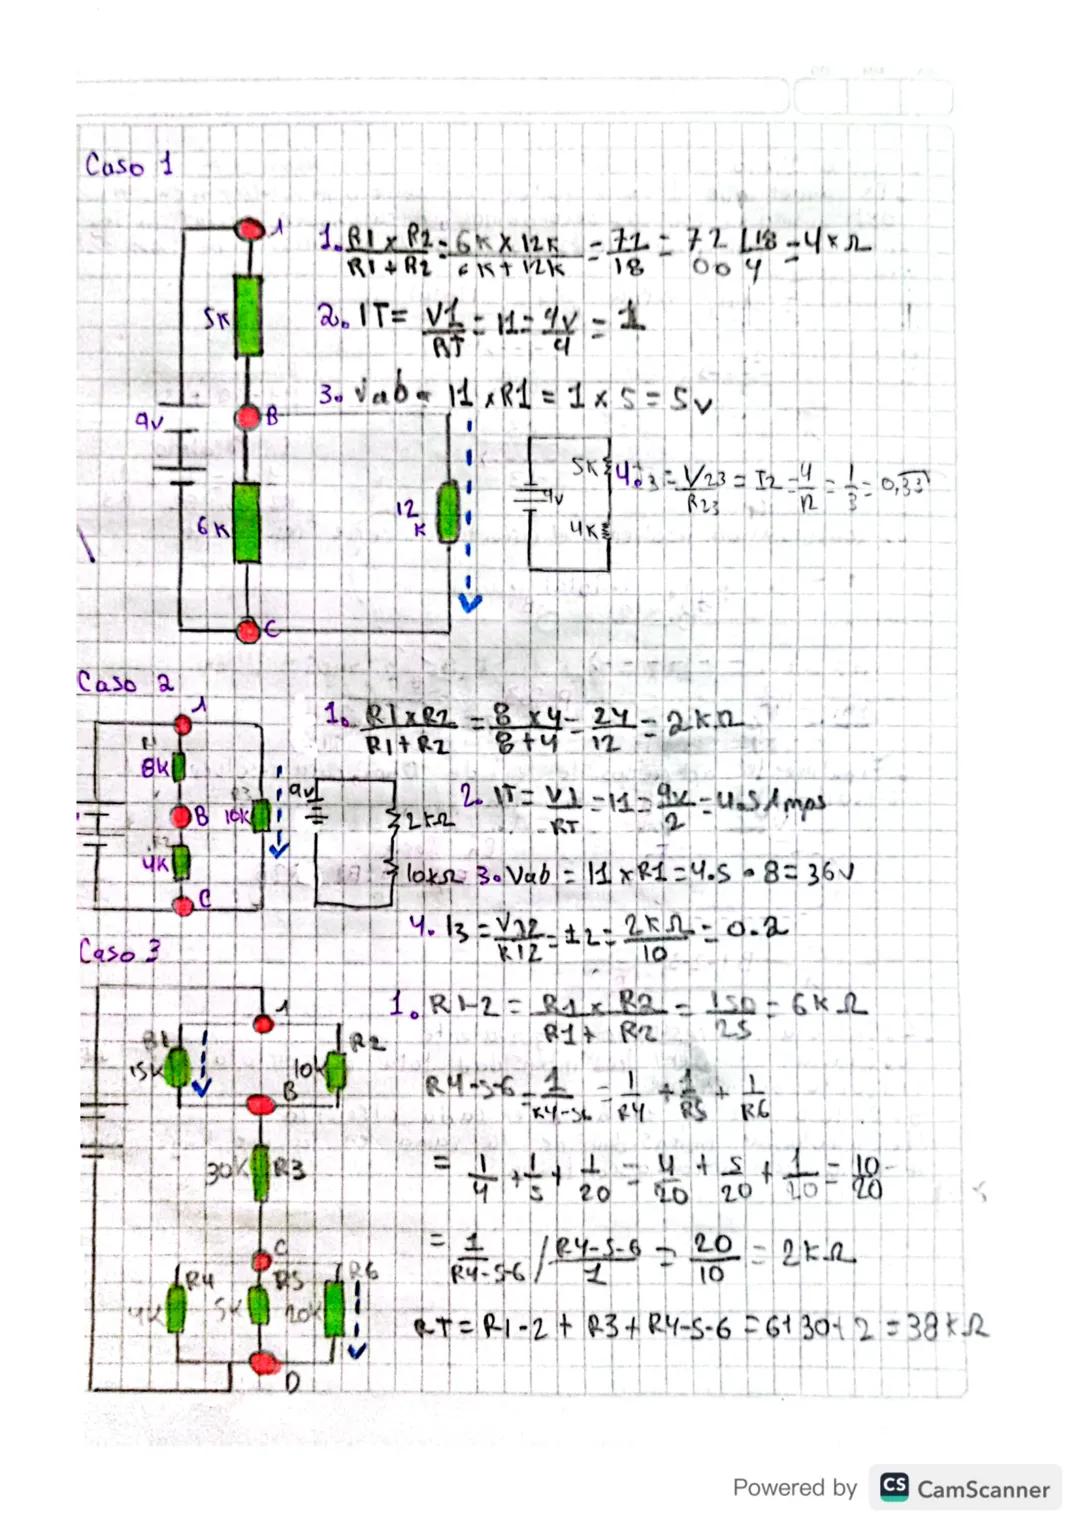 Caso 1
1. R1 x R2 / R1 + R2 = 6K x 12K / 6K + 12K = 72 / 18 = 72 | 18 = 4KΩ
00 4
2. IT = V1 / RT = I1 = 4V / 4 = 1
3. Vab = I1 x R1 = 1 x 5 = 5v
A
5K
9v
B
6K
12 K
C
5K
9v
4K
4. I3 = V23 / R23 = I2 = 4 / 12 = 1 / 3 = 0,33
Caso 2
A
8K
B
10K
4K
C
9v
2KΩ
10KΩ
1. R1 x R2 / R1 + R2 = 8 x 4 / 8 + 4 = 24 / 12 = 2KΩ
2. IT = V1 / RT = I1 = 9v / 2 = 4.5 Amps
3. Vab = I1 x R1 = 4.5 • 8 = 36v
4. I3 = V12 / R12 = I2 = 2KΩ / 10 = 0.2
Caso 3
A
R1
15K
R2
10K
B
30K R3
C
R4
4K
R5
5K
R6
20K
D
1. R1-2 = R1 x R2 / R1 + R2 = 150 / 25 = 6KΩ
R4-5-6 = 1 / R4-56 = 1 / R4 + 1 / R5 + 1 / R6
= 1 / 4 + 1 / 5 + 1 / 20 = 4 / 20 + 5 / 20 + 1 / 20 = 10 / 20
= 1 / R4-5-6 / R4-5-6 / 1 = 20 / 10 = 2KΩ
RT = R1-2 + R3 + R4-5-6 = 6+30+2 = 38KΩ
Powered by CS CamScanner